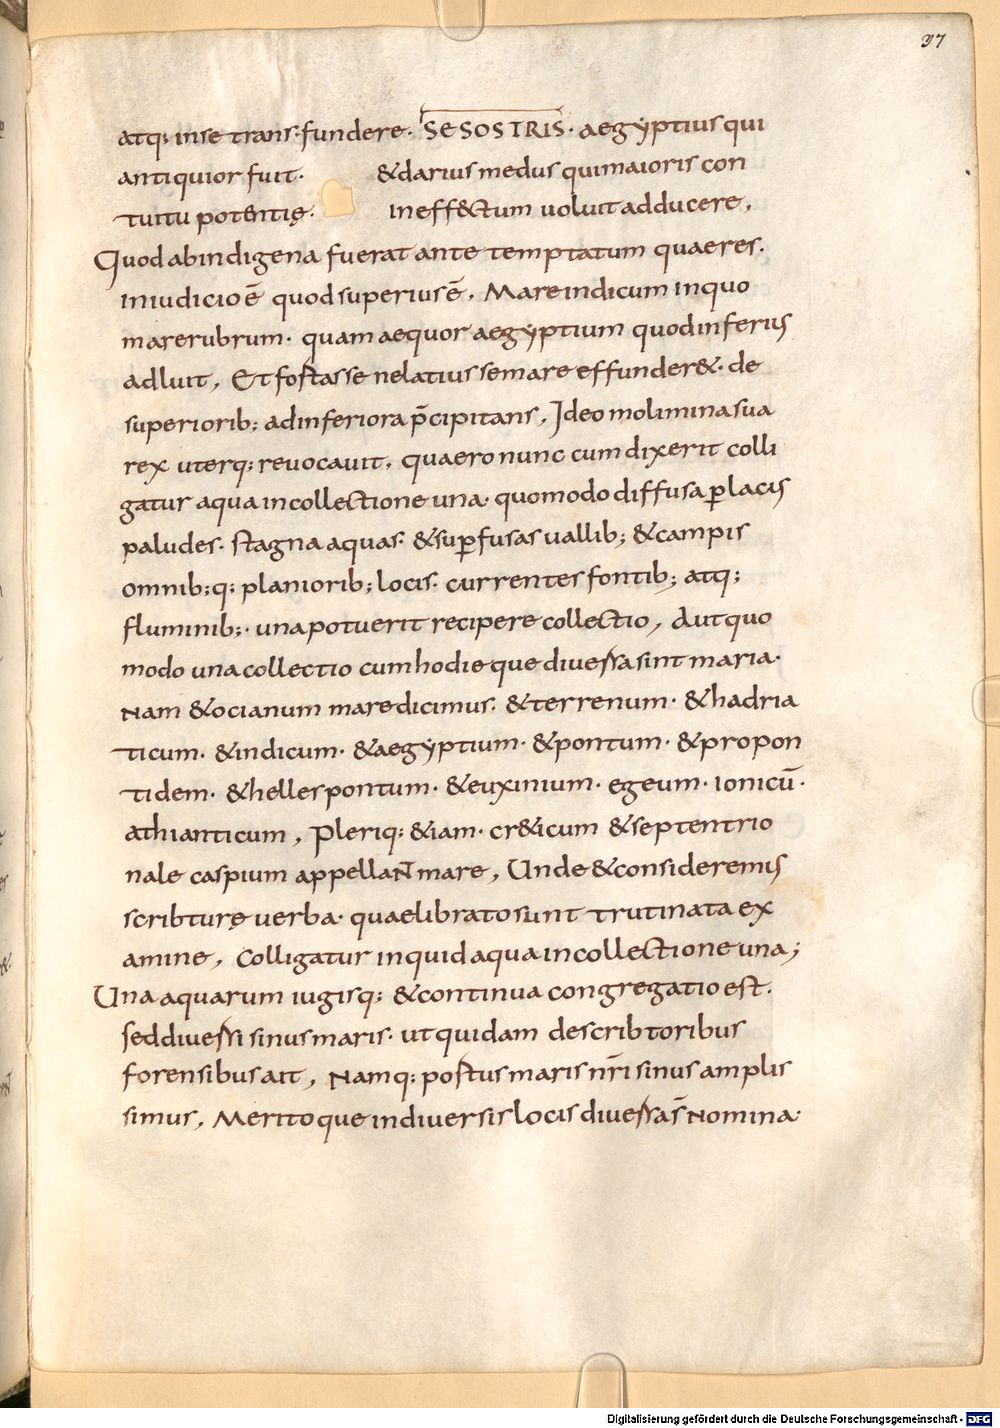 37
atq; inse trans·fundere· SESOSTRIS· aegyptius qui
antiquior fuit· &darius medus quimaioris con
tuitu potentię· Ineff&ctum uoluit adducere,
Quod abindigena fuerat ante temptatum quaeres·
Iniudicio ē quod superius ē, Mare indicum inquo
mare rubrum· quam aequor aegyptium quod inferius
adluit, Et fostasse nelatius semare effunder&· de
superiorib; adinferiora p̄cipitans, Ideo molimina sua
rex uterq; reuocauit, quaero nunc cum dixerit colli
gatur aqua in collectione una· quomodo diffusa ꝑ lacis
paludes· stagna aquas· &suꝑfusas uallib; &campis
omnib;q; planiorib; locis· currentes fontib; atq;
fluminib;· una potuerit recipere collectio, Aut quo
modo una collectio cum hodie que diuessa sint maria·
Nam &ocianum mare dicimus· &terrenum· &hadria
ticum· &indicum· &aegyptium· &pontum· &propon
tidem· &hellespontum· &euxinium· egeum· ionicū·
athianticum, Pleriq; &iam· cr&icum &septentrio
nale caspium appellaNT mare, Unde &consideremus
scribturę uerba· quae librato sunt trutinata ex
amine, Colligatur inquid aqua in collectione una;
Una aquarum iugisq; &continua congregatio est·
sed diuessi sinus maris· ut quidam describtoribus
forensibus ait, Namq; postus maris nr̄i sinus amplis
simus, Merito que indiuersis locis diuessas̄ Nomina·
Digitalisierung gefördert durch die Deutsche Forschungsgemeinschaft - DFG